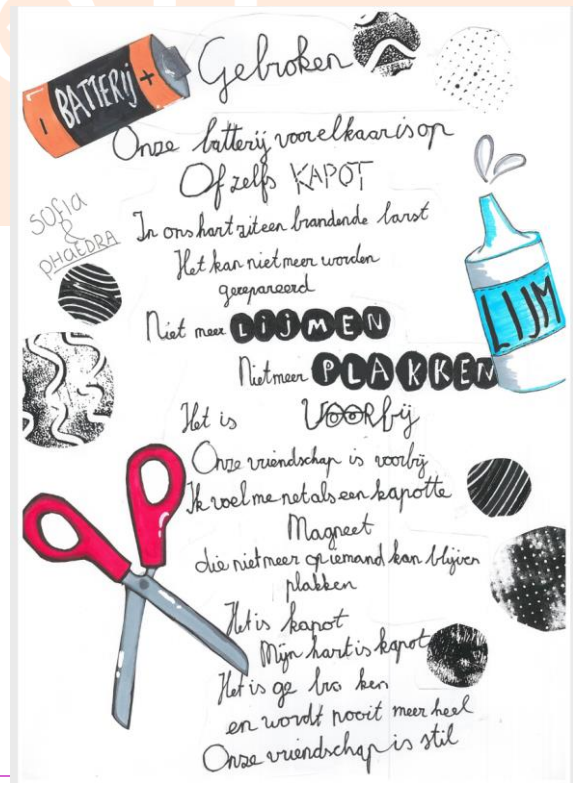 Gebroken
- BATTERIJ +
Onze batterij voor elkaar is op
Of zelfs KAPOT
SOFIA
&
PHAEDRA
In ons hart zit een brandende barst
Het kan niet meer worden
gerepareerd
Niet meer LIJMEN
LIJM
Niet meer PLAKKEN
Het is VOORbij
Onze vriendschap is voorbij
Ik voel me net als een kapotte
Magneet
die niet meer op iemand kan blijven
plakken
Het is kapot
Mijn hart is kapot
Het is ge bro ken
en wordt nooit meer heel
Onze vriendschap is stil